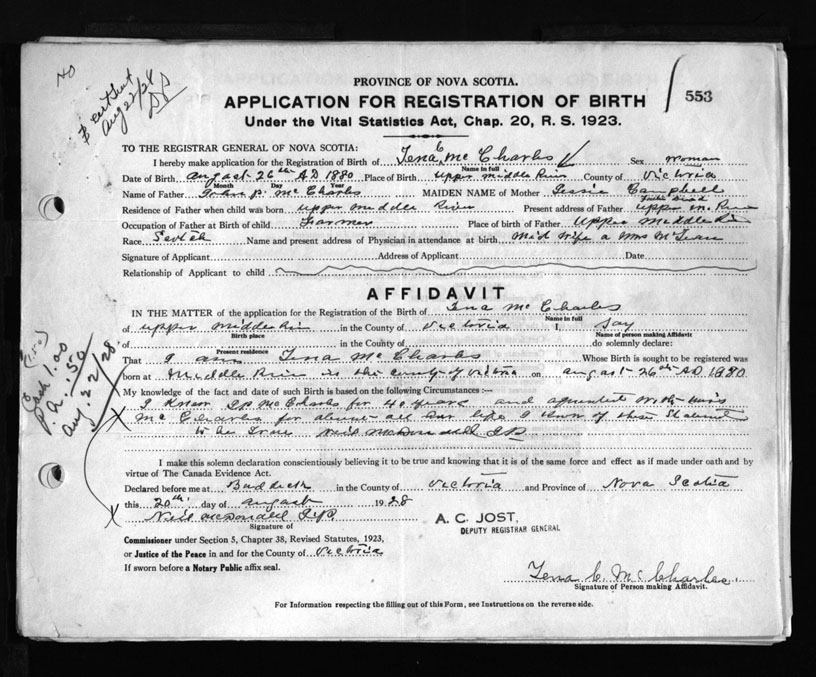 NO
Aug 22/28
PROVINCE OF NOVA SCOTIA.
553
APPLICATION FOR REGISTRATION OF BIRTH
Under the Vital Statistics Act, Chap. 20, R. S. 1923.
TO THE REGISTRAR GENERAL OF NOVA SCOTIA:
I hereby make application for the Registration of Birth of Tena C. Mc Charles Sex woman
Name in full
Date of Birth augast 26th AD 1880 Place of Birth upper middle River County of Victoria
Month Day Year
Name of Father John P. Mc Charles MAIDEN NAME of Mother Jessie Campbell
Residence of Father when child was born upper middle River Present address of Father upper M. River
Occupation of Father at Birth of child Farmer Place of birth of Father Upper Middle Riv
Race Scotch Name and present address of Physician in attendance at birth mid wife a Mrs McLean
Signature of Applicant Address of Applicant Date
Relationship of Applicant to child
AFFIDAVIT
IN THE MATTER of the application for the Registration of the Birth of Tena Mc Charles
Name in full
of upper middle Riv in the County of Victoria I, say
Birth place Name of person making Affidavit
of in the County of do solemnly declare:
Present residence
That I am Tena Mc Charles Whose Birth is sought to be registered was
born at Middle River in the county of victoria on augast 26th AD 1880
My knowledge of the fact and date of such Birth is based on the following Circumstances :—
I Know J.P. McCharles for 40 years and
Mc Charles for her life I Know of these
to be True Neil McDonald JP
I make this solemn declaration conscientiously believing it to be true and knowing that it is of the same force and effect as if made under oath and by
virtue of The Canada Evidence Act.
Declared before me at Baddeck in the County of Victoria and Province of Nova Scotia
this 20th day of augast 1928
Neil McDonald J.P.
Signature of
A. C. JOST,
DEPUTY REGISTRAR GENERAL
Commissioner under Section 5, Chapter 38, Revised Statutes, 1923,
or Justice of the Peace in and for the County of Victoria
If sworn before a Notary Public affix seal.
Tena C. Mc Charles
Signature of Person making Affidavit.
For Information respecting the filling out of this Form, see Instructions on the reverse side.
(1.50)
Cash 1.00
.50
Aug. 22/28